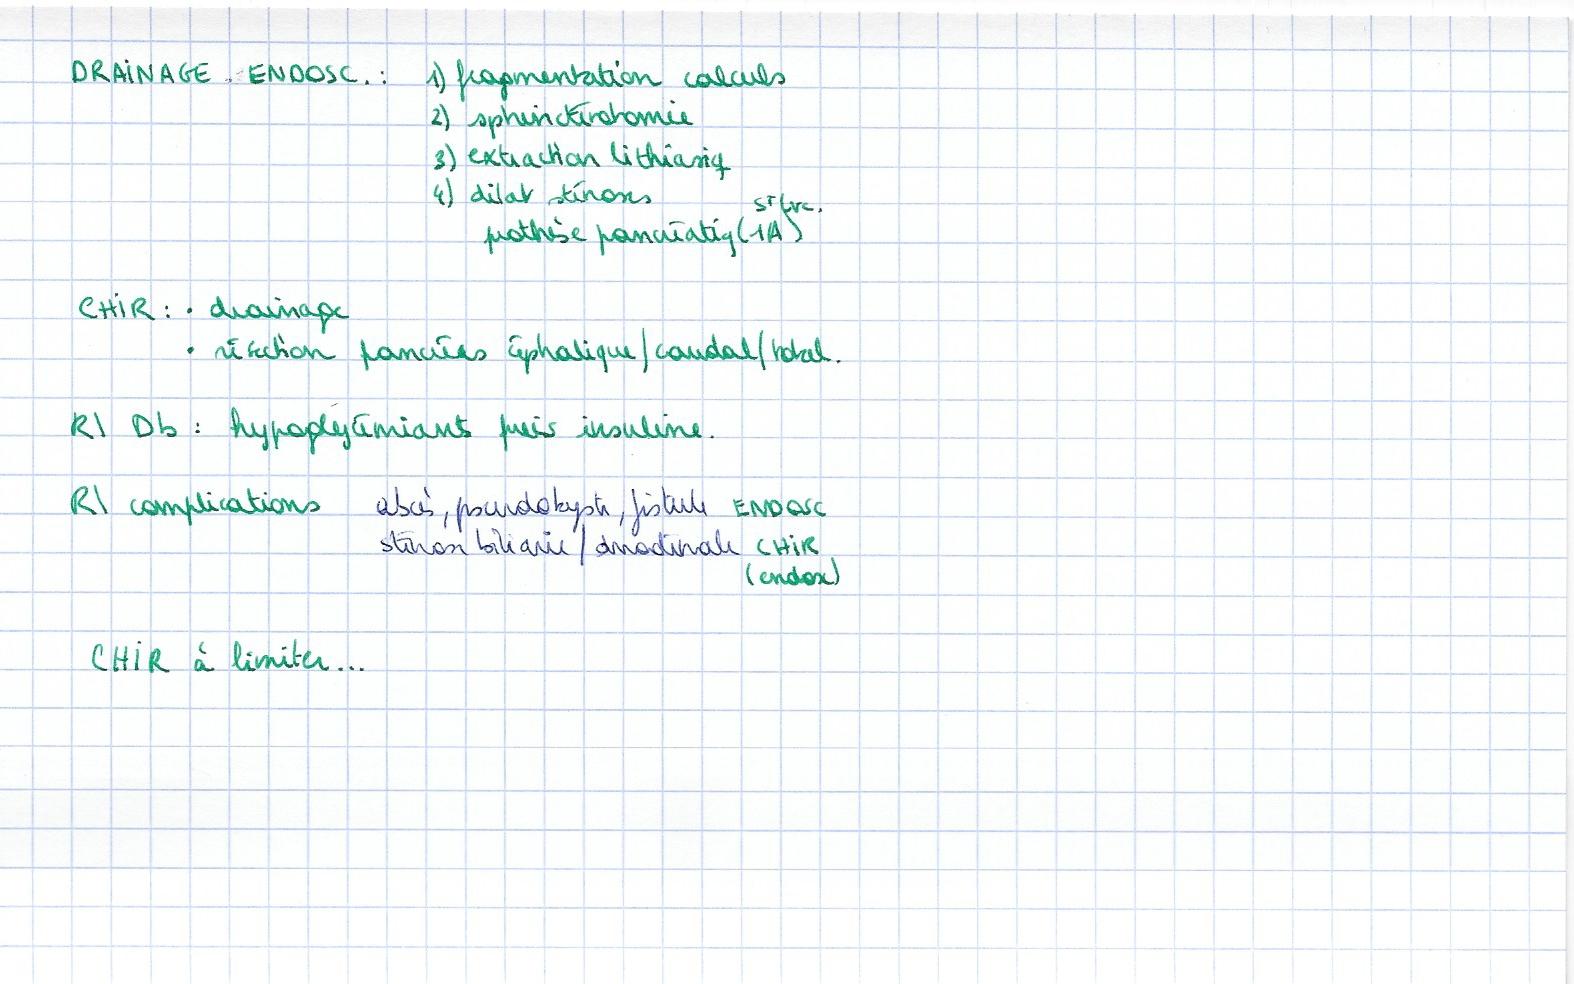 DRAINAGE ENDOSC. : 1) fragmentation calculs
2) sphinctérotomie
3) extraction lithiasiq
4) dilat sténoses
prothèse pancréatiq (1A)
CHIR : • drainage
• résection pancréas céphalique/caudal/total.
R\ Db : hypoglycémiants puis insuline.
R\ complications abcès, pseudokyste, fistule ENDOSC
sténose biliaire / duodénale CHIR
(endosc)
CHIR à limiter...